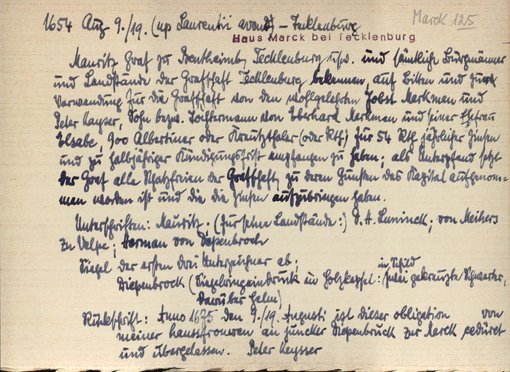 1654 Aug 9./19. (up Laurentii avend) – Tecklenburg
Marck 125
Haus Marck bei Tecklenburg
Mauritz Graf zu Bentheimb, Tecklenburg usw. und sämtliche Burgmänner
und Landstände der Graffschaft Tecklenburg bekennen, auf Bitten und zur
Verwendung für die Graffschaft von den wollgelehrten Jobst Merkman und
Peter Kayser, Sohn bezw. Tochtermann von Eberhard Merkman und seiner Ehefrau
Elsabe, 900 Albertiner oder Kreutzthaler (oder Rth) für 54 Rth jährlicher Zinsen
und zu halbjähriger Kündigungsfrist empfangen zu haben; als Unterpfand setzt
der Graf alle Schatzfreien der Graffschaft, zu deren Gunsten das Kapital aufgenom-
men worden ist und die die Zinsen aufzubringen haben.
Unterschriften: Mauritz. (für sehne Landstände:) J. A. Leninck; von Meihers
zu Velpe; Herman von Diepenbroch
Siegel der ersten drei Unterzeichner ab;
Diepenbrock (Siegelringeindruck in Holzkapsel: im Schild zwei gekreuzte Schwerter,
darüber Helm)
Rückschrift: Anno 1675 den 9./19. Augusti ist dieser obligation von
meiner hausfrouwen an juncker Diepenbruck zur Marck cediret
und übergelassen. Peter Keysser